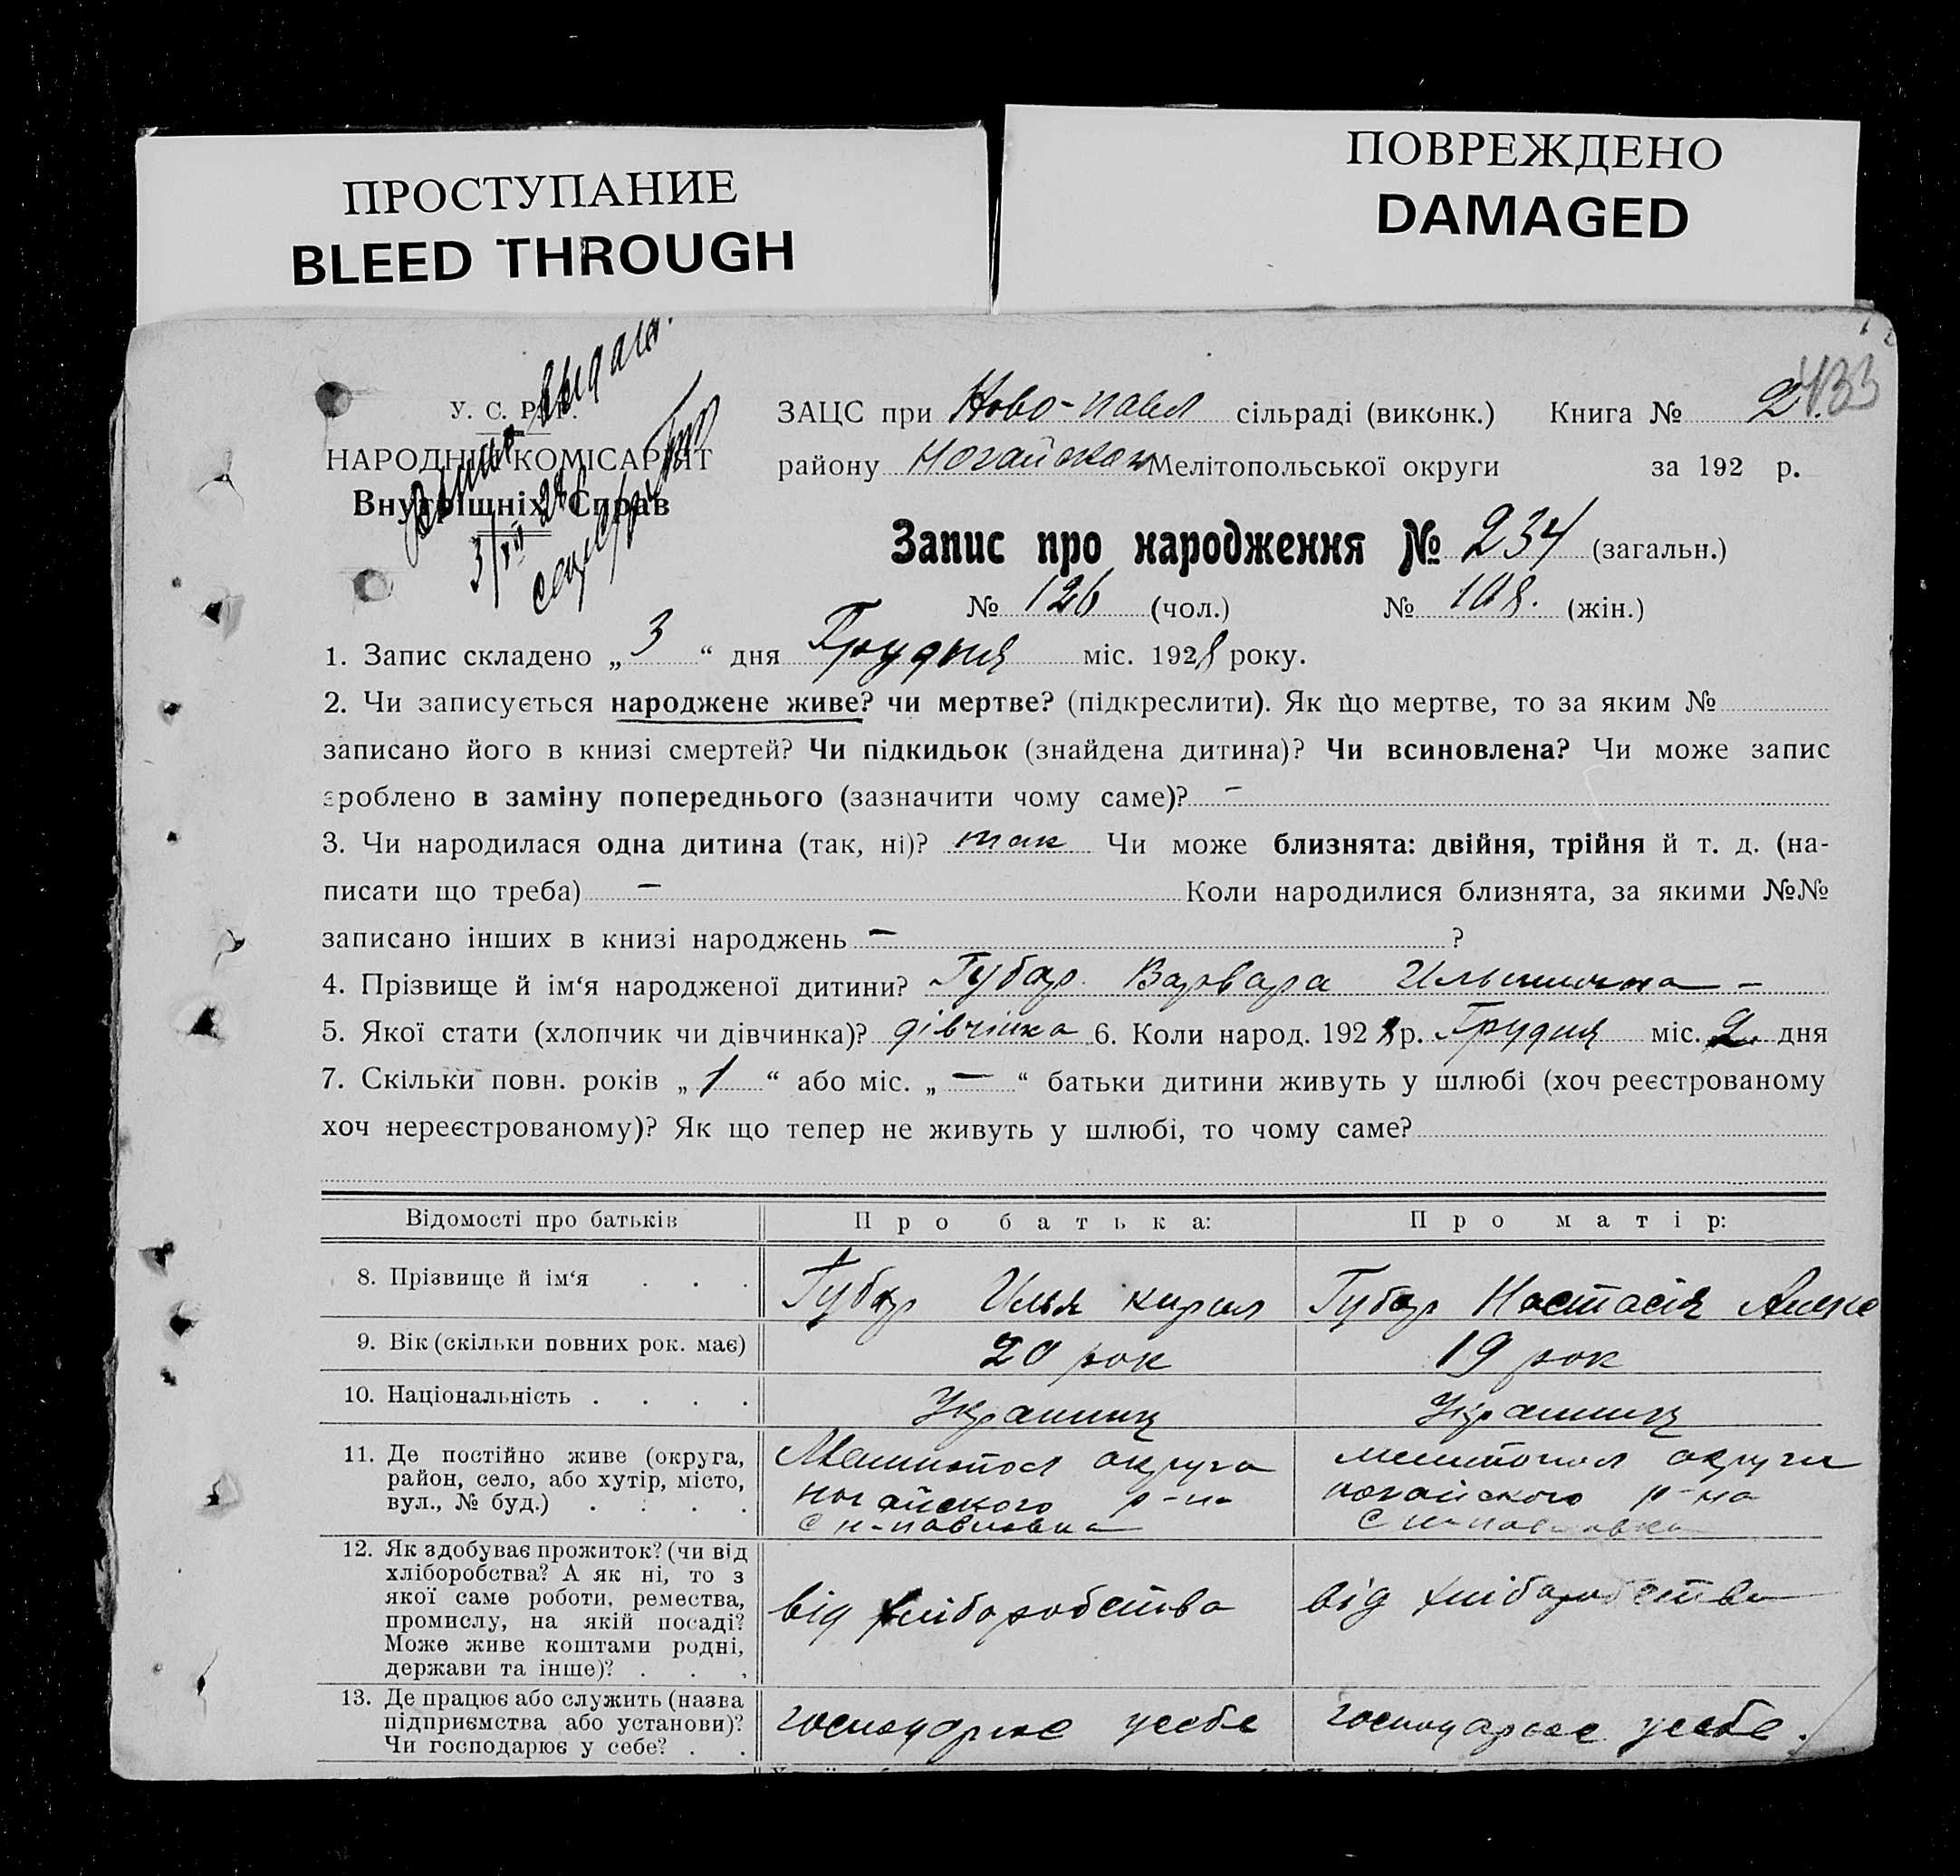 ПРОСТУПАНИЕ
BLEED THROUGH
ПОВРЕЖДЕНО
DAMAGED
433
У. С. Р. Р.
НАРОДНІЙ КОМІСАРІЯТ
Внутрішніх Справ
ЗАЦС при Ново-павл сільраді (виконк.) Книга № 2
району Ногайском Мелітопольської округи за 192 р.
Запис про народження № 234 (загальн.)
№ 126 (чол.) № 108. (жін.)
1. Запис складено „ 3 “ дня Грудня міс. 1928 року.
2. Чи записується народжене живе? чи мертве? (підкреслити). Як що мертве, то за яким №
записано його в книзі смертей? Чи підкидьок (знайдена дитина)? Чи всиновлена? Чи може запис
зроблено в заміну попереднього (зазначити чому саме)? -
3. Чи народилася одна дитина (так, ні)? так Чи може близнята: двійня, трійня й т. д. (на-
писати що треба) — Коли народилися близнята, за якими №№
записано інших в книзі народжень — ?
4. Прізвище й ім‘я народженої дитини? Губар Варвара Ильинична -
5. Якої стати (хлопчик чи дівчинка)? дівчінка 6. Коли народ. 1928 р. Грудня міс. 2. дня
7. Скільки повн. років „ 1 “ або міс. „ — “ батьки дитини живуть у шлюбі (хоч реєстрованому
хоч нереєстрованому)? Як що тепер не живуть у шлюбі, то чому саме?
Відомості про батьків Про батька: Про матір:
8. Прізвище й ім‘я . . . Губар Илья кирил Губар Настасія Алексе
9. Вік (скільки повних рок. має) 20 рок 19 рок
10. Національність . . . . Украинец Украинец
11. Де постійно живе (округа,
район, село, або хутір, місто,
вул., № буд.) . . . .
Мелитопол округа
ногайского р-на
с н-павловка
мелитопол округи
ногайского р-на
с н-павловка
12. Як здобуває прожиток? (чи від
хліборобства? А як ні, то з
якої саме роботи, ремества,
промислу, на якій посаді?
Може живе коштами родні,
держави та інше)? . . .
від хліборобства від хліборобства
13. Де працює або служить (назва
підприємства або установи)?
Чи господарює у себе? . .
господарює усебе господарює усебе.